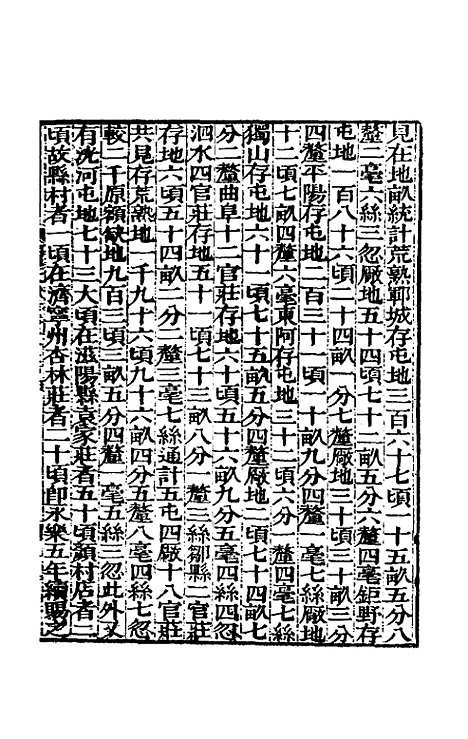 見在地畝統計荒熟鄆城存屯地三百六十七頃一十五畝五分八
釐二毫六絲三忽厰地五十四頃七十二畝五分六釐四毫鉅野存
屯地一百八十六頃二十四畝一分七釐厰地三十頃三十畝三分
四釐平陽存屯地二百三十一頃一十畝九分四釐一毫七絲厰地
十二頃七畝四釐六毫東阿存屯地三十二頃六分一釐四毫七絲
獨山存屯地六十一頃七十五畝五釐厰地二頃七十四畝七
分二釐曲阜十二官莊存地六十頃五十六畝九分五毫四絲四忽
泗水四官莊存地五十一頃七十三畝八分一釐三絲鄒縣二官莊
存地六頃五十四畝二分二釐三毫七絲通計五屯四厰十八官莊
共見存荒熟地一千九十六頃九十六畝四分五釐八毫四絲七忽
較二千原額缺地九百三頃三畝五分四釐一毫五絲三忽此外又
有洸河屯地七十三大頃在滋陽縣袁家莊者五十頃顏村店者二
頃故縣村者一頃在濟寧州杏林莊者二十頃卽永樂五年續賜之